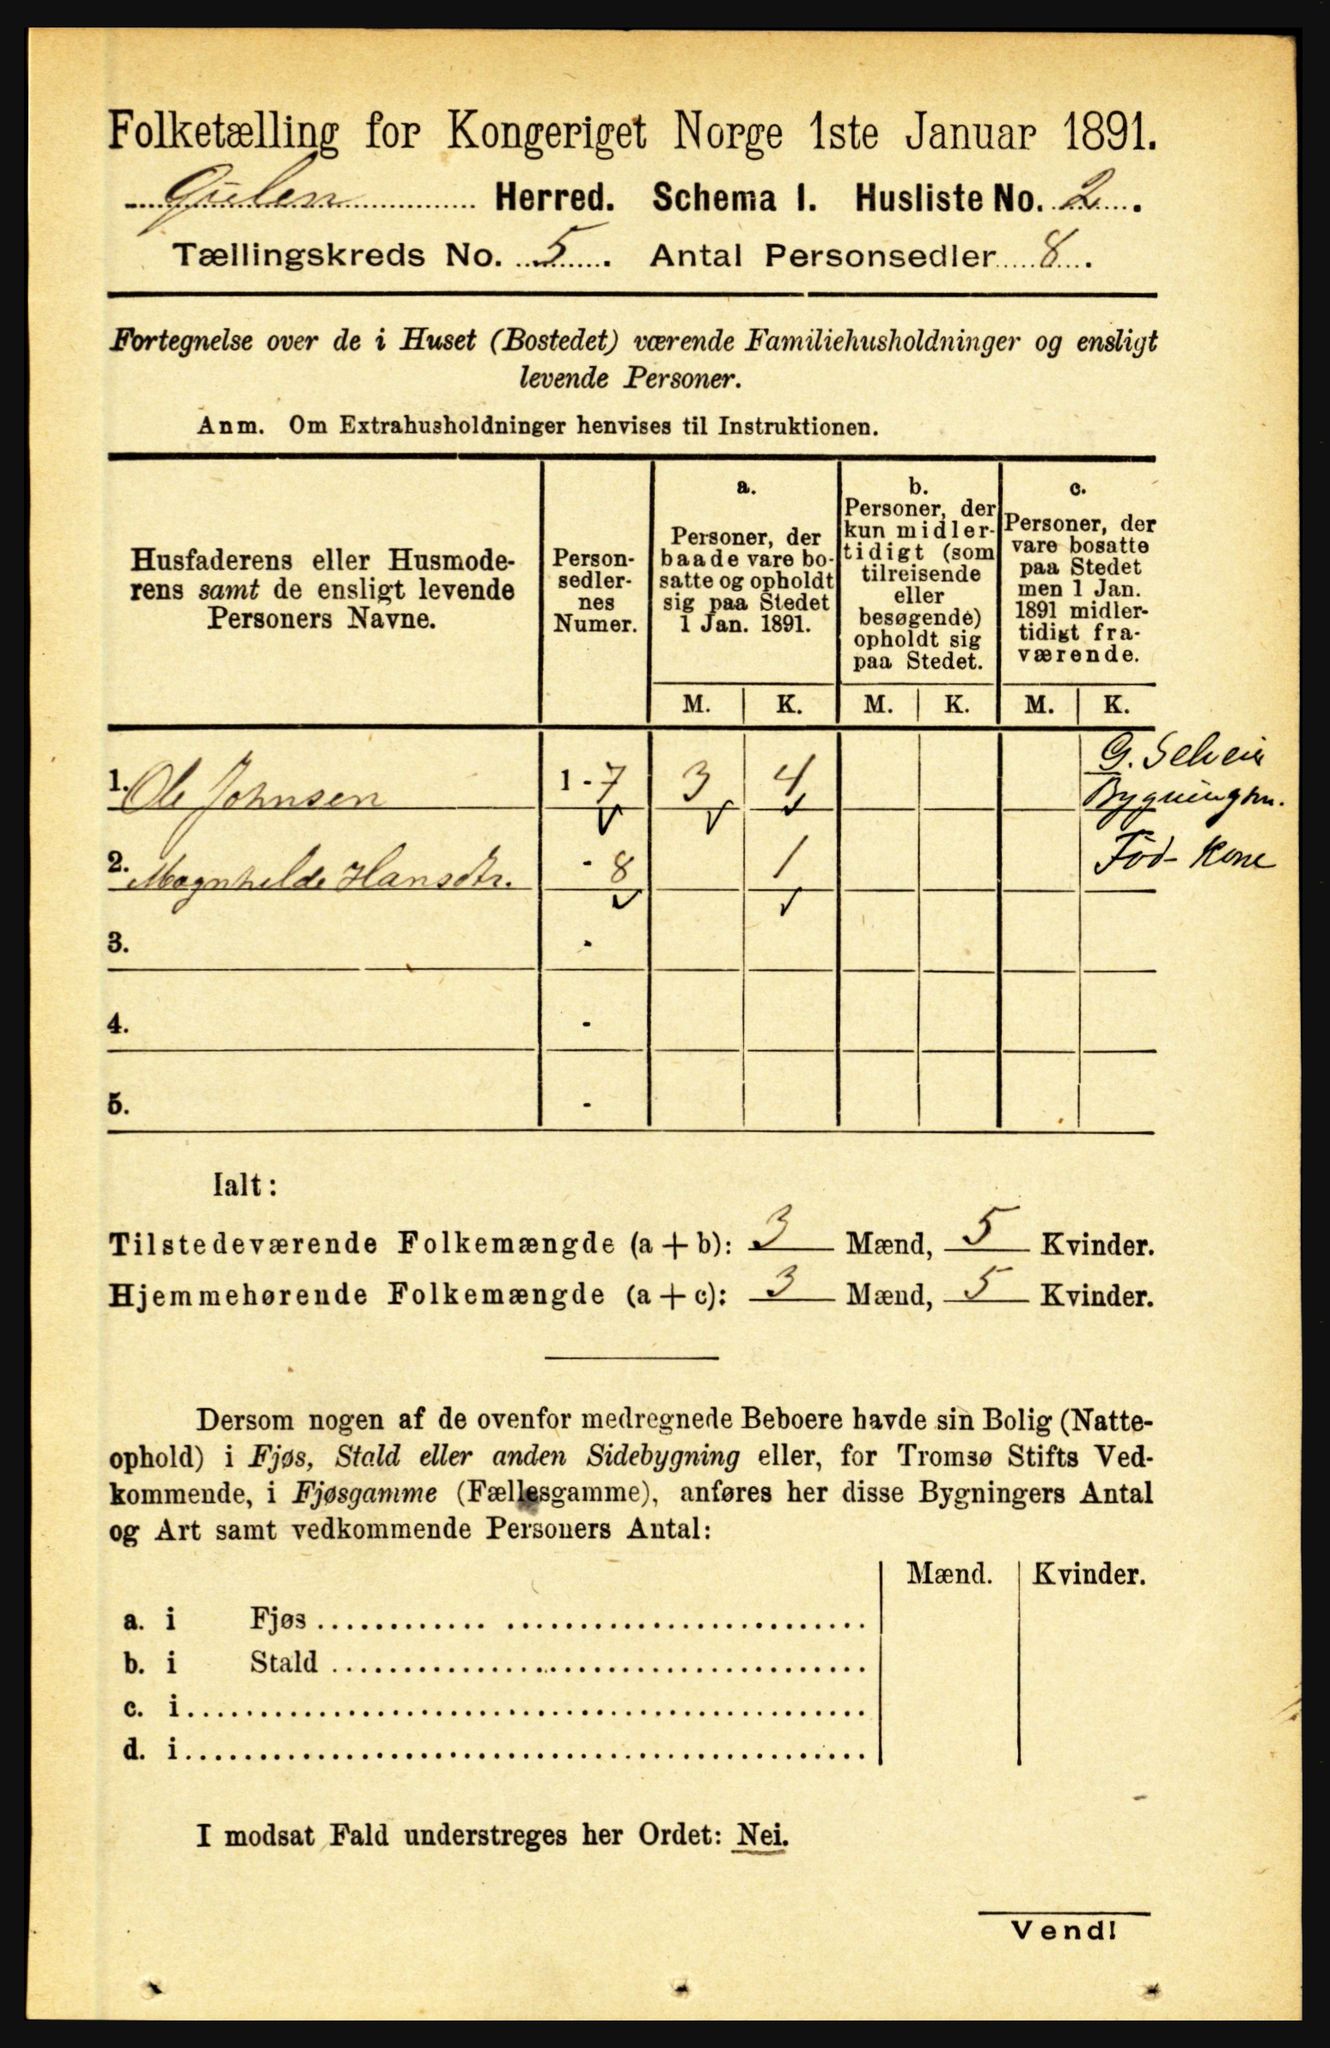 Folketælling for Kongeriget Norge 1ste Januar 1891.
Gulen Herred. Schema I. Husliste No. 2.
Tællingskreds No. 5. Antal Personsedler 8.
Fortegnelse over de i Huset (Bostedet) værende Familiehusholdninger og ensligt
levende Personer.
Anm. Om Extrahusholdninger henvises til Instruktionen.
Husfaderens eller Husmode-
rens samt de ensligt levende
Personers Navne.
Person-
sedler-
nes
Numer.
a.
Personer, der
baade vare bo-
satte og opholdt
sig paa Stedet
1 Jan. 1891.
b.
Personer, der
kun midler-
tidigt (som
tilreisende
eller
besøgende)
opholdt sig
paa Stedet.
c.
Personer, der
vare bosatte
paa Stedet
men 1 Jan.
1891 midler-
tidigt fra-
værende.
M. K. M. K. M. K.
1. Ole Johnsen 1 - 7 3 4 G. Selveier
Bygningsm.
2. Magnhilde Hansdtr. - 8 1 Fød- Kone
3. -
4. -
5. -
Ialt:
Tilstedeværende Folkemængde (a + b): 3 Mænd, 5 Kvinder.
Hjemmehørende Folkemængde (a + c): 3 Mænd, 5 Kvinder.
Dersom nogen af de ovenfor medregnede Beboere havde sin Bolig (Natte-
ophold) i Fjøs, Stald eller anden Sidebygning eller, for Tromsø Stifts Ved-
kommende, i Fjøsgamme (Fællesgamme), anføres her disse Bygningers Antal
og Art samt vedkommende Personers Antal:
Mænd. Kvinder.
a. i Fjøs
b. i Stald
c. i
d. i
I modsat Fald understreges her Ordet: Nei.
Vend!